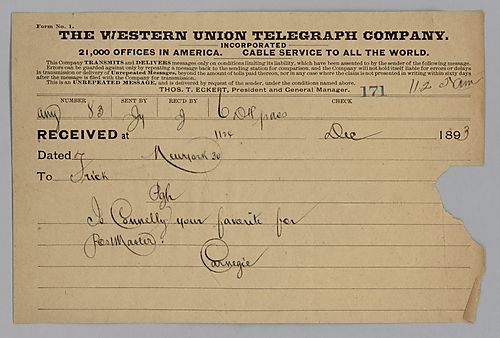 Form No. 1.
THE WESTERN UNION TELEGRAPH COMPANY.
INCORPORATED
21,000 OFFICES IN AMERICA. CABLE SERVICE TO ALL THE WORLD.
This Company TRANSMITS and DELIVERS messages only on conditions limiting its liability, which have been assented to by the sender of the following message.
Errors can be guarded against only by repeating a message back to the sending station for comparison, and the Company will not hold itself liable for errors or delays
in transmission or delivery of Unrepeated Messages, beyond the amount of tolls paid thereon, nor in any case where the claim is not presented in writing within sixty days
after the message is filed with the Company for transmission.
This is an UNREPEATED MESSAGE, and is delivered by request of the sender, under the conditions named above.
THOS. T. ECKERT, President and General Manager.
171
NUMBER SENT BY REC'D BY CHECK
83 Jy J 6 DH
RECEIVED at 1124 Dec 1893
Dated Newyork 30
To Frick
Pgh
Is Connelly your favorite for
PostMaster?
Carnegie